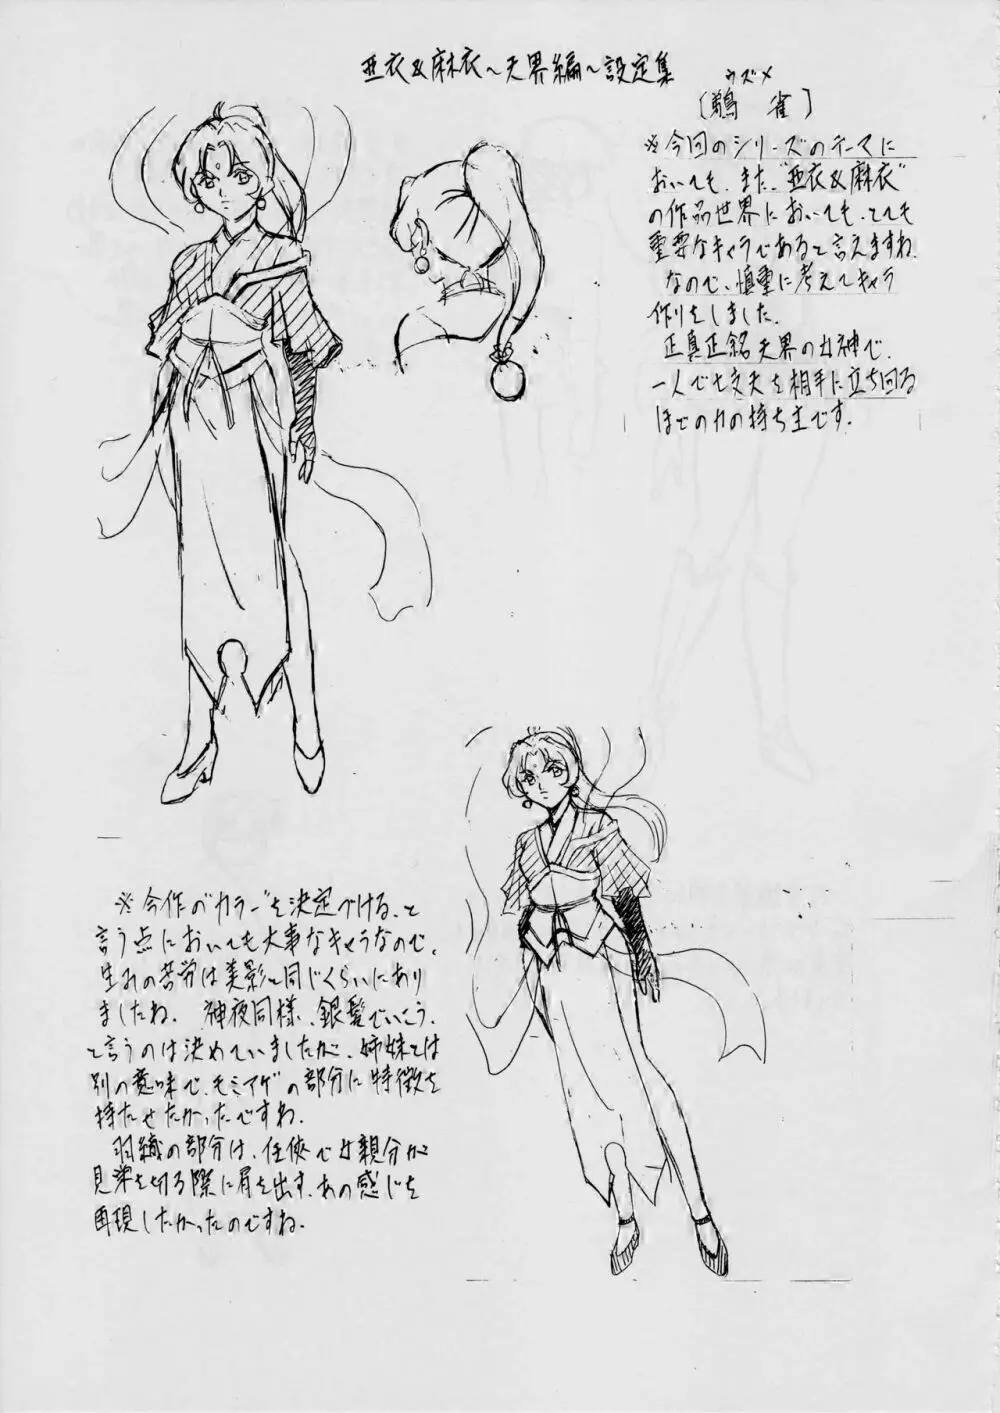 亜衣&麻衣～天界編～設定集
ウズメ
〔鵜 雀〕
※今回のシリーズのテーマに
おいても、また、“亜衣&麻衣”
の作品世界においても、とても
重要なキャラであると言えますね。
なので、慎重に考えてキャラ
作りをしました。
正真正銘天界の女神で、
一人で七丈夫を相手に立ち回る
ほどの力の持ち主です。
※今作の“カラー”を決定づける、と
言う点においても大事なキャラなので、
生みの苦労は美影と同じくらいにあり
ましたね。 神夜同様、銀髪でいこう、
と言うのは決めていましたが、姉妹とは
別の意味で、モミアゲの部分に特徴を
持たせたかったですね。
羽織の部分は、任侠で女親分が
見栄を切る際に肩を出す、あの感じを
再現したかったのですね。